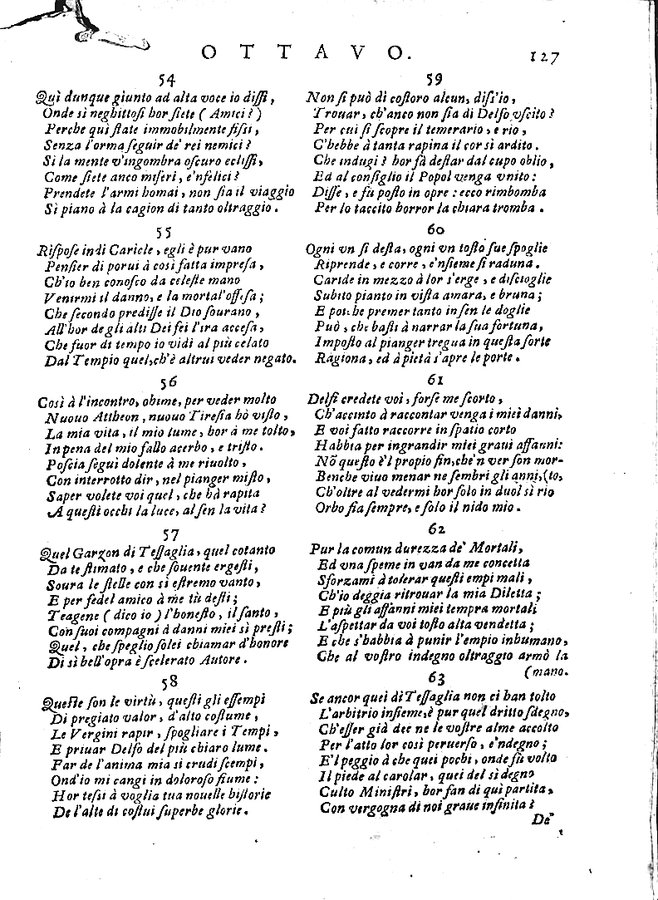 OTTAVO. 127
54
Quì dunque giunto ad alta voce io dissi,
Onde sì neghittosi hor siete ( Amici ? )
Perche quì state immobilmente fissi,
Senza l'orma seguir de' rei nemici ?
Si la mente v'ingombra oscuro ecclissi,
Come siete anco miseri, e'nfelici ?
Prendete l'armi homai, non sia il viaggio
Sì piano à la cagion di tanto oltraggio.
55
Rispose indi Caricle, egli è pur vano
Pensier di porui à così fatta impresa,
Ch'io ben conosco da celeste mano
Venirmi il danno, e la mortal'offesa ;
Che secondo predisse il Dio sourano,
All'hor de gli alti Dei fei l'ira accesa,
Che fuor di tempo io vidi al più celato
Dal Tempio quel, ch'è altrui veder negato.
56
Così à l'incontro, ohime, per veder molto
Nuouo Attheon, nuouo Tiresia hò visto,
La mia vita, il mio lume, hor à me tolto,
In pena del mio fallo acerbo, e tristo.
Poscia seguì dolente à me riuolto,
Con interrotto dir, nel pianger misto,
Saper volete voi quel, che hà rapita
A questi occhi la luce, al sen la vita ?
57
Quel Garzon di Tessaglia, quel cotanto
Da te stimato, e che souente ergesti,
Soura le stelle con sì estremo vanto,
E per fedel amico à me tù desti ;
Teagene ( dico io ) l'honesto, il santo,
Con suoi compagni à danni miei sì presti ;
Quel, che speglio solei chiamar d'honore
Di sì bell'opra è scelerato Autore.
58
Queste son le virtù, questi gli essempi
Di pregiato valor, d'alto costume,
Le Vergini rapir, spogliare i Tempi,
E priuar Delfo del più chiaro lume.
Par de l'anima mia sì crudi scempi,
Ond'io mi cangi in doloroso fiume :
Hor tessi à voglia tua nouelle historie
De l'alte di costui superbe glorie.
59
Non si può di costoro alcun, diss'io,
Trouar, ch'anco non sia di Delfo vscito ?
Per cui si scopre il temerario, e rio,
C'hebbe à tanta rapina il cor sì ardito.
Che indugi ? hor fà destar dal cupo oblio,
Ed al consiglio il Popol venga vnito :
Disse, e fù posto in opre : ecco rimbomba
Per lo taccito horror la chiara tromba.
60
Ogni vn si desta, ogni vn tosto sue spoglie
Riprende, e corre, e'nsieme si raduna.
Caride in mezzo à lor s'erge, e discioglie
Subito pianto in vista amara, e bruna ;
E poiche premer tanto in sen le doglie
Può, che basti à narrar la sua fortuna,
Imposto al pianger tregua in questa sorte
Ragiona, ed à pietà s'apre le porte.
61
Delfi credete voi, forse me scorto,
Ch'accinto à raccontar venga i miei danni,
E voi fatto raccorre in spatio corto
Habbia per ingrandir miei graui affanni:
Nõ questo è'l propio fin, che'n ver son mor-
Benche viuo menar ne sembri gli anni, (to,
Ch'oltre al vedermi hor solo in duol sì rio
Orbo sia sempre, e solo il nido mio.
62
Pur la comun durezza de' Mortali,
Ed vna speme in van da me concetta
Sforzami à tolerar questi empi mali,
Ch'io deggia ritrouar la mia Diletta ;
E più gli affanni miei tempra mortali
L'aspettar da voi tosto alta vendetta ;
E che s'habbia à punir l'empio inhumano,
Che al vostro indegno oltraggio armò la
(mano.
63
Se ancor quei di Tessaglia non ci han tolto
L'arbitrio insieme, è pur quel dritto sdegno,
Ch'esser già dee ne le vostre alme accolto
Per l'atto lor così peruerso, e'ndegno ;
E'l peggio à che quei pochi, onde fù volto
Il piede al carolar, quei del sì degno
Culto Ministri, hor fan di quì partita,
Con vergogna di noi graue infinita ?
De'